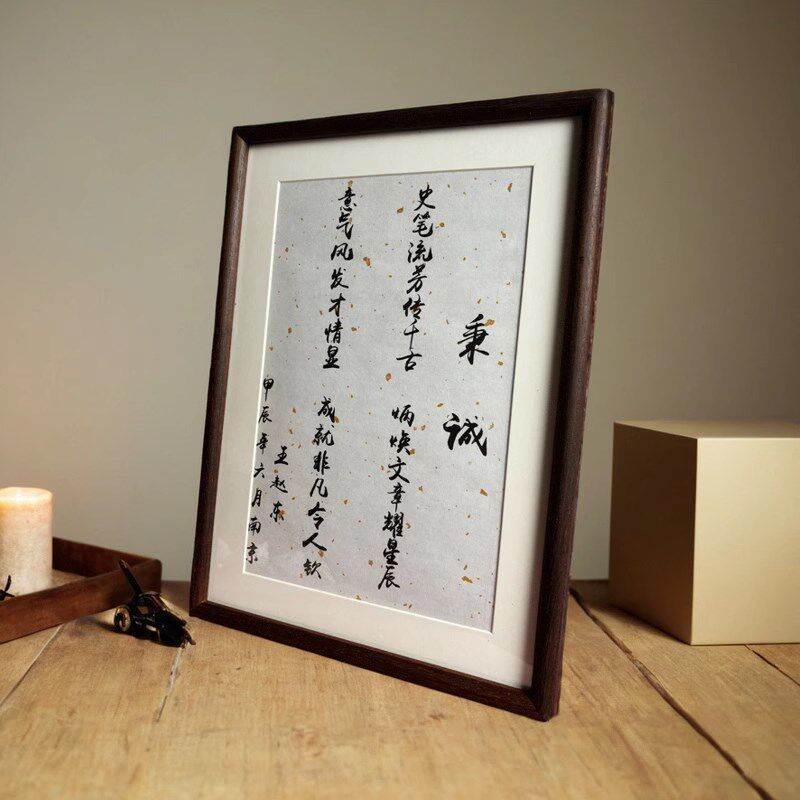 秉诚
史笔流芳传千古
炳焕文章耀星辰
意气风发才情显
成就非凡令人钦
王赵东
甲辰年六月南京